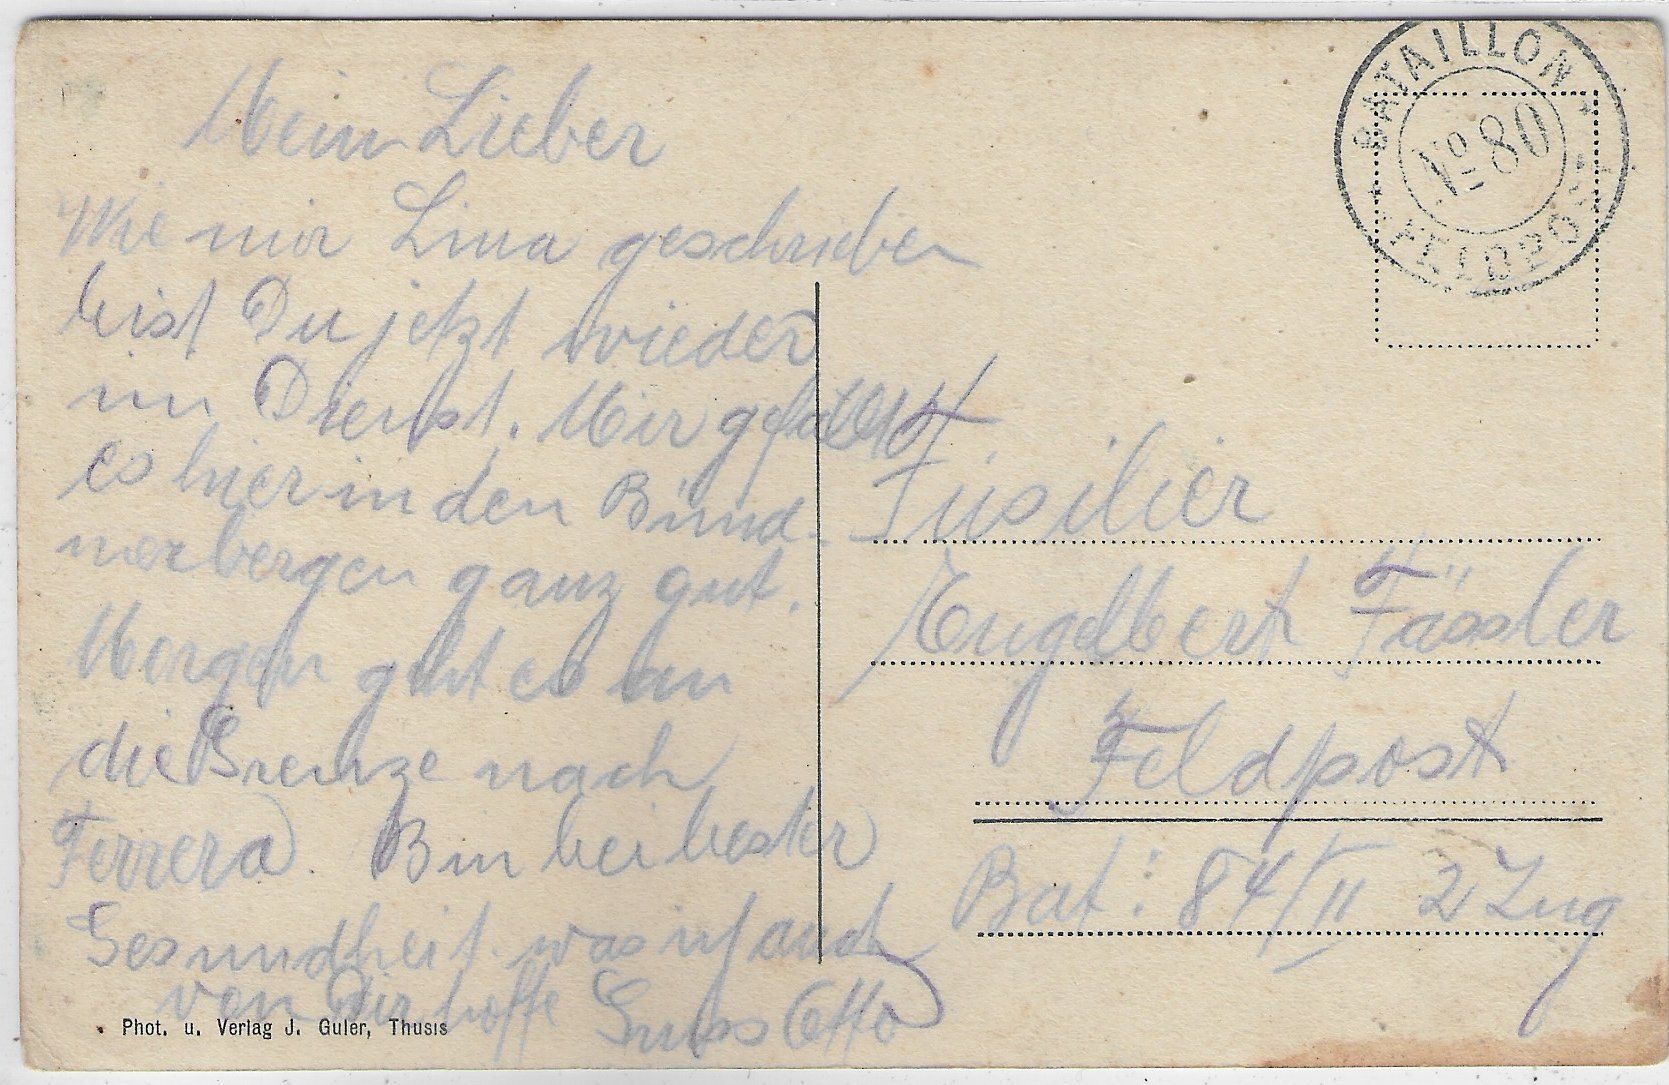 Mein Lieber
Wie mir Lina geschrieben
bist Du jetzt wieder
im Dienst. Mir gefällt
es hier in den Bünd-
nerbergen ganz gut.
Morgen geht es an
die Grenze nach
Ferrera. Bin bei bester
Gesundheit was ich auch
von Dir hoffe Gruss Otto
Phot. u. Verlag J. Guler, Thusis
BATAILLON
No 80
FELDPOST
Füsilier
Engelbert Fässler
Feldpost
Bat: 84/II 2 Zug